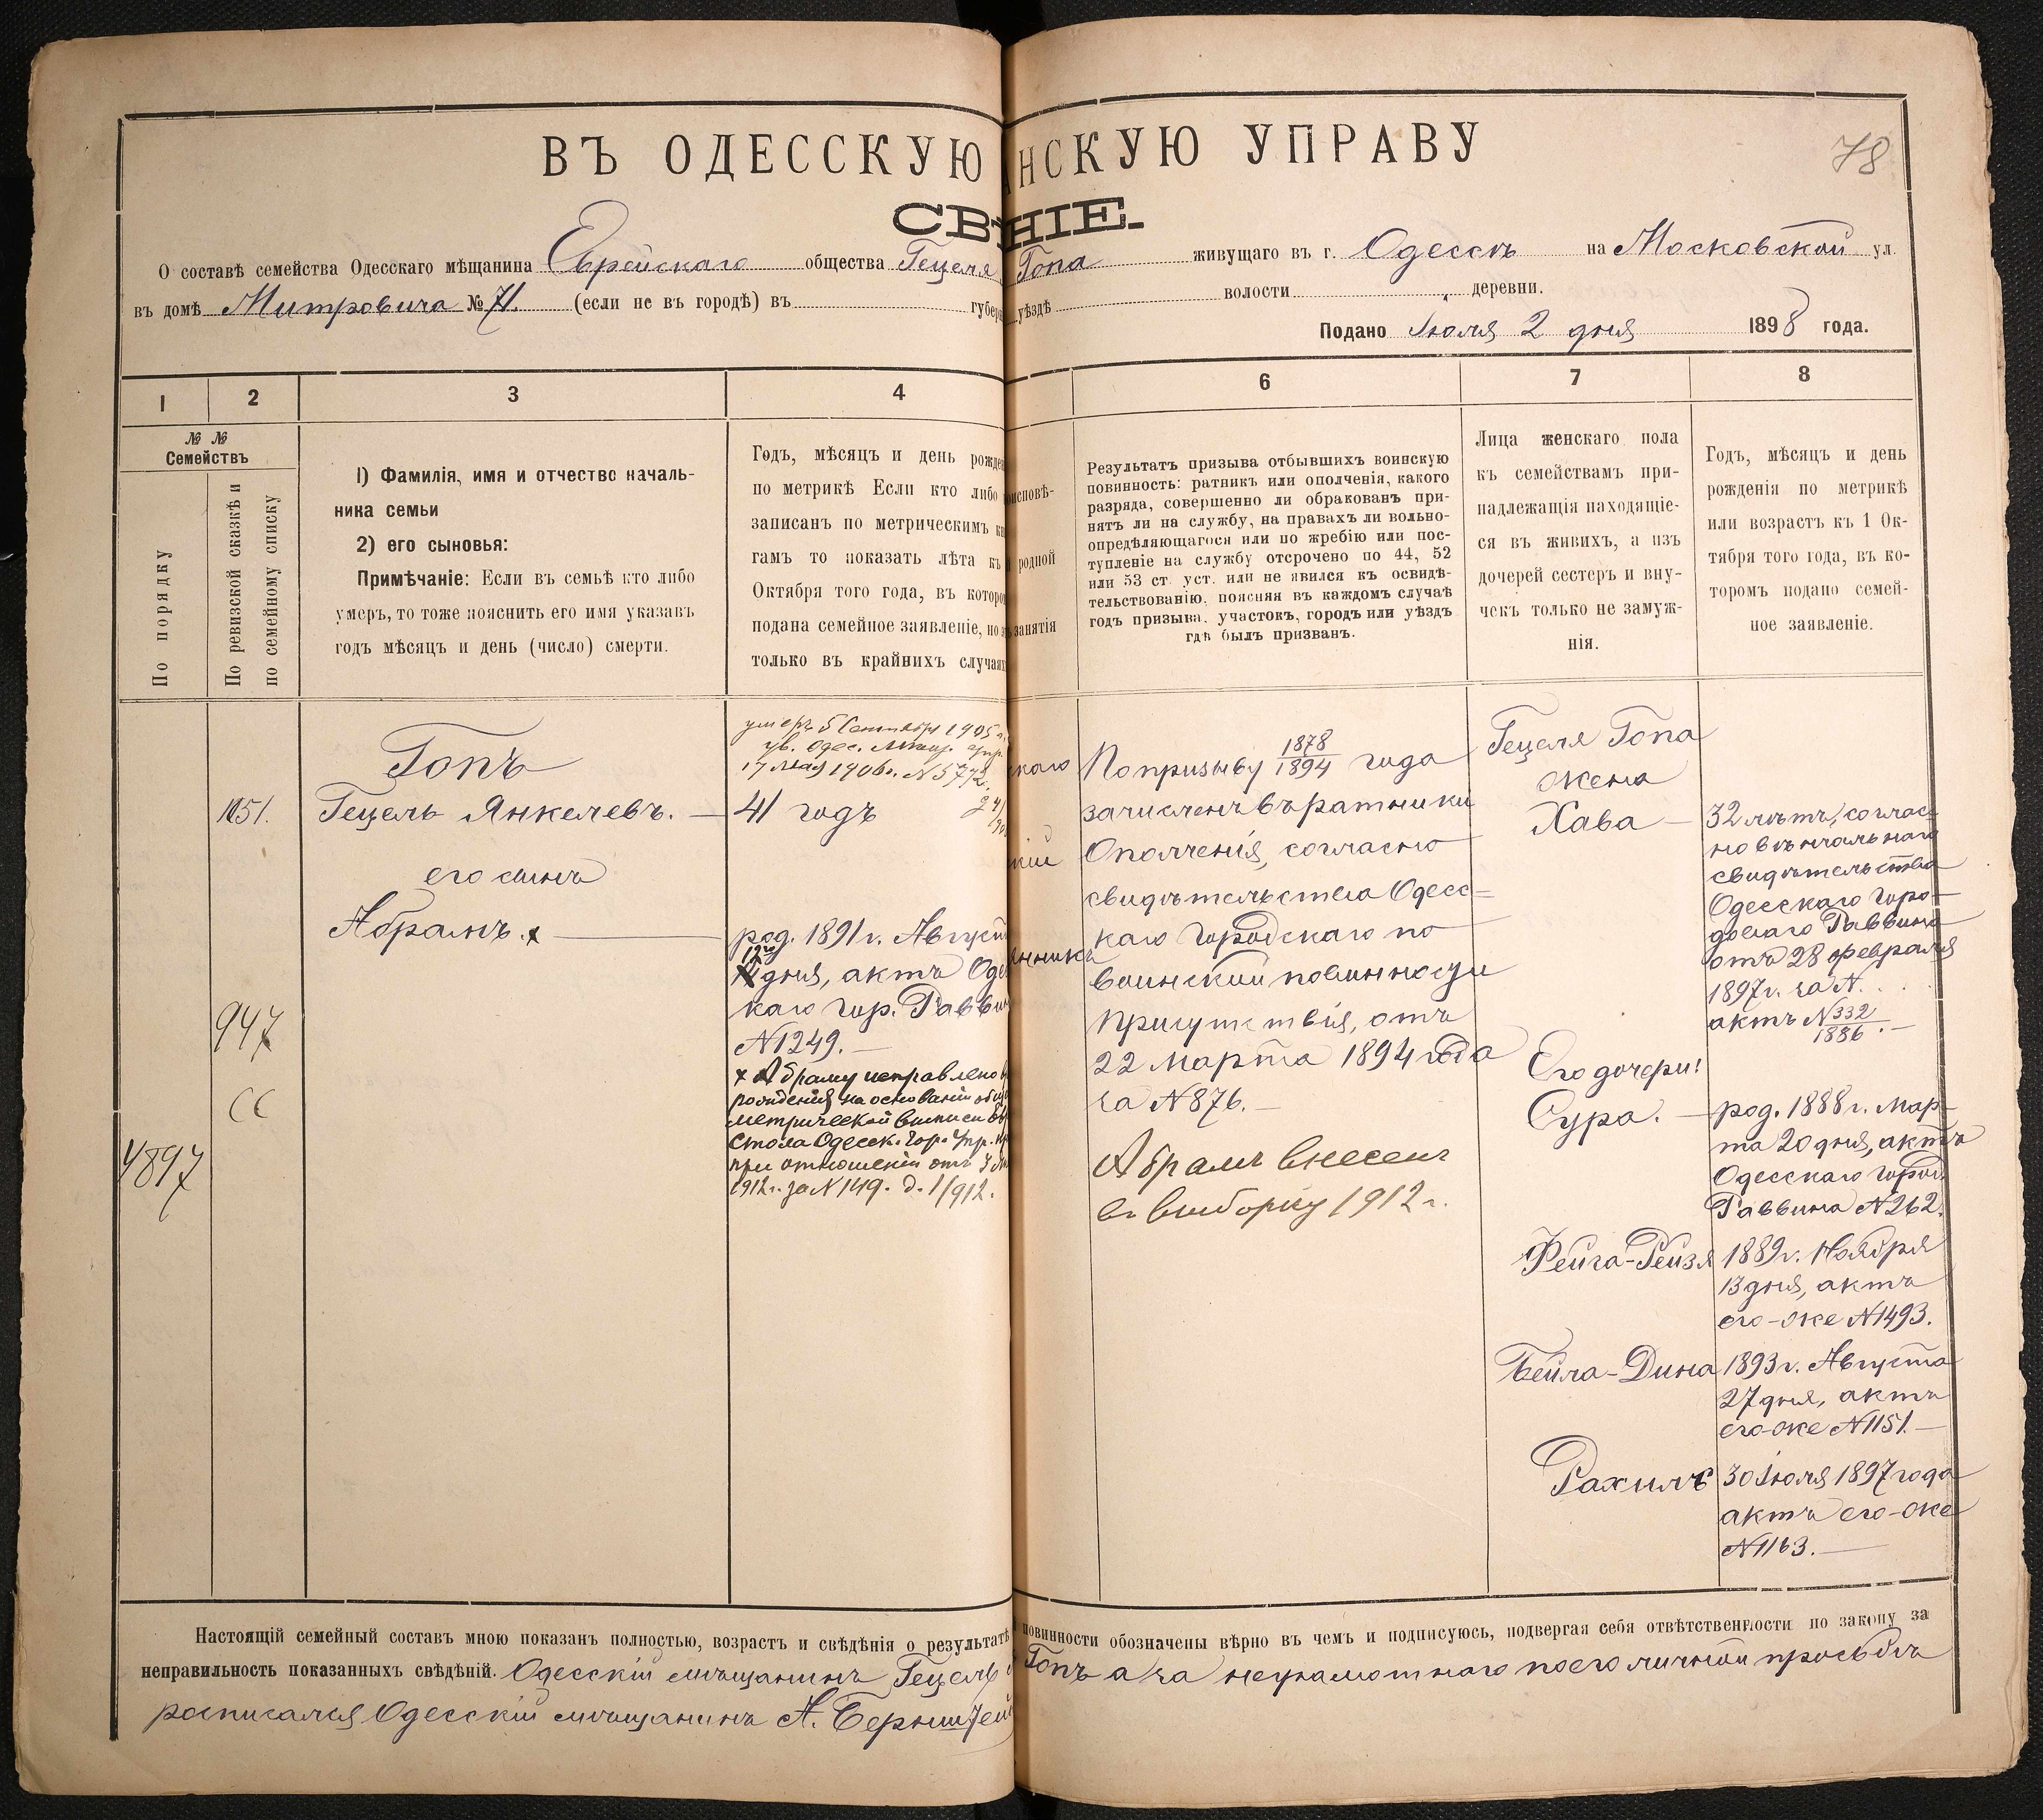 ВЪ ОДЕССКУЮ НСКУЮ УПРАВУ
78
СВ НІЕ.
О составѣ семейства Одесскаго мѣщанина Еврейскаго общества Гецеля Гопа живущаго въ г. Одессѣ на Московской ул.
въ домѣ Митровича № 71. (если не въ городѣ) въ губер уѣздѣ волости деревни.
Подано Іюля 2 дня 1898 года.
1 2 3 4 6 7 8
№ №
Семействъ
По порядку
По ревизской сказкѣ и
по семейному списку
1) Фамилія, имя и отчество началь-
ника семьи
2) его сыновья:
Примѣчаніе: Если въ семьѣ кто либо
умеръ, то тоже пояснить его имя указавъ
годъ мѣсяцъ и день (число) смерти.
Годъ, мѣсяцъ и день рожде
по метрикѣ Если кто либо
записанъ по метрическимъ к
гамъ то показать лѣта къ
Октября того года, въ которо
подана семейное заявленіе, но
только въ крайнихъ случая
исповѣ-
родной
занятія
Результатъ призыва отбывшихъ воинскую
повинность: ратникъ или ополченія, какого
разряда, совершенно ли обракованъ при-
нятъ ли на службу, на правахъ ли вольно-
опредѣляющагося или по жребію или пос-
тупленіе на службу отсрочено по 44, 52
или 53 ст. уст. или не явился къ освидѣ-
тельствованію, поясняя въ каждомъ случаѣ
годъ призыва, участокъ, городъ или уѣздъ
гдѣ былъ призванъ.
Лица женскаго пола
къ семействамъ при-
надлежащія находящіе-
ся въ живихъ, а изъ
дочерей сестеръ и вну-
чекъ только не замуж-
нія.
Годъ, мѣсяцъ и день
рожденія по метрикѣ
или возрастъ къ 1 Ок-
тября того года, въ ко-
торомъ подано семей-
ное заявленіе.
1051.
947
4897
Гопъ
Гецель Янкелевъ.
его сынъ
Абрамъ. х
умеръ 5 Сентября 1905 г.
ув. Одес. Мѣщ. упр.
17 Мая 1906 г. N 5772.
41 годъ
род. 1891 г. Август
12го
дня, актъ Оде
каго гор. Раввин
N 1249.
х Абраму исправлено
рожденія на основаніи
метрической выписи
стола Одесск. Гор. Упр.
при отношеніи отъ
1912 г. за N 149. д. 1/912.
каго
кій
По призыву 1878/1894 года
зачисленъ въ ратники
Ополченія, согласно
свидѣтельства Одесс=
каго Городскаго по
воинской повинности
Присутствія, отъ
22 Марта 1894 года
за N 876.
Абрамъ внесенъ
въ выборку 1912 г.
Гецеля Гопа
жена
Хава
32 лѣтъ, соглас-
но вѣнчальнаго
свидѣтельства
Одесскаго Горо-
дского Раввина
отъ 28 февраля
1897 г. за N. . .
актъ N 332/1886.
Его дочери:
Сура.
род. 1888 г. Мар-
та 20 дня, актъ
Одесскаго город.
Раввина N 262.
Фейга-Рейзя
1889 г. Ноября
13 дня, актъ
его-же N 1493.
Бейла-Дина
1893 г. Августа
27 дня, актъ
его-же N 1151.
Рахиль
30 Іюля 1897 года
актъ его-же
N 1163.
Настоящій семейный составъ мною показанъ полностью, возрастъ и свѣдѣнія о результатѣ повинности обозначены вѣрно въ чемъ и подписуюсь, подвергая себя отвѣтственности по закону за
неправильность показанныхъ свѣдѣній. Одесскій мѣщанинъ Гецель Гопъ а за неграмотнаго по его личной просьбѣ
росписался Одесскій мѣщанинъ А. Бернштей